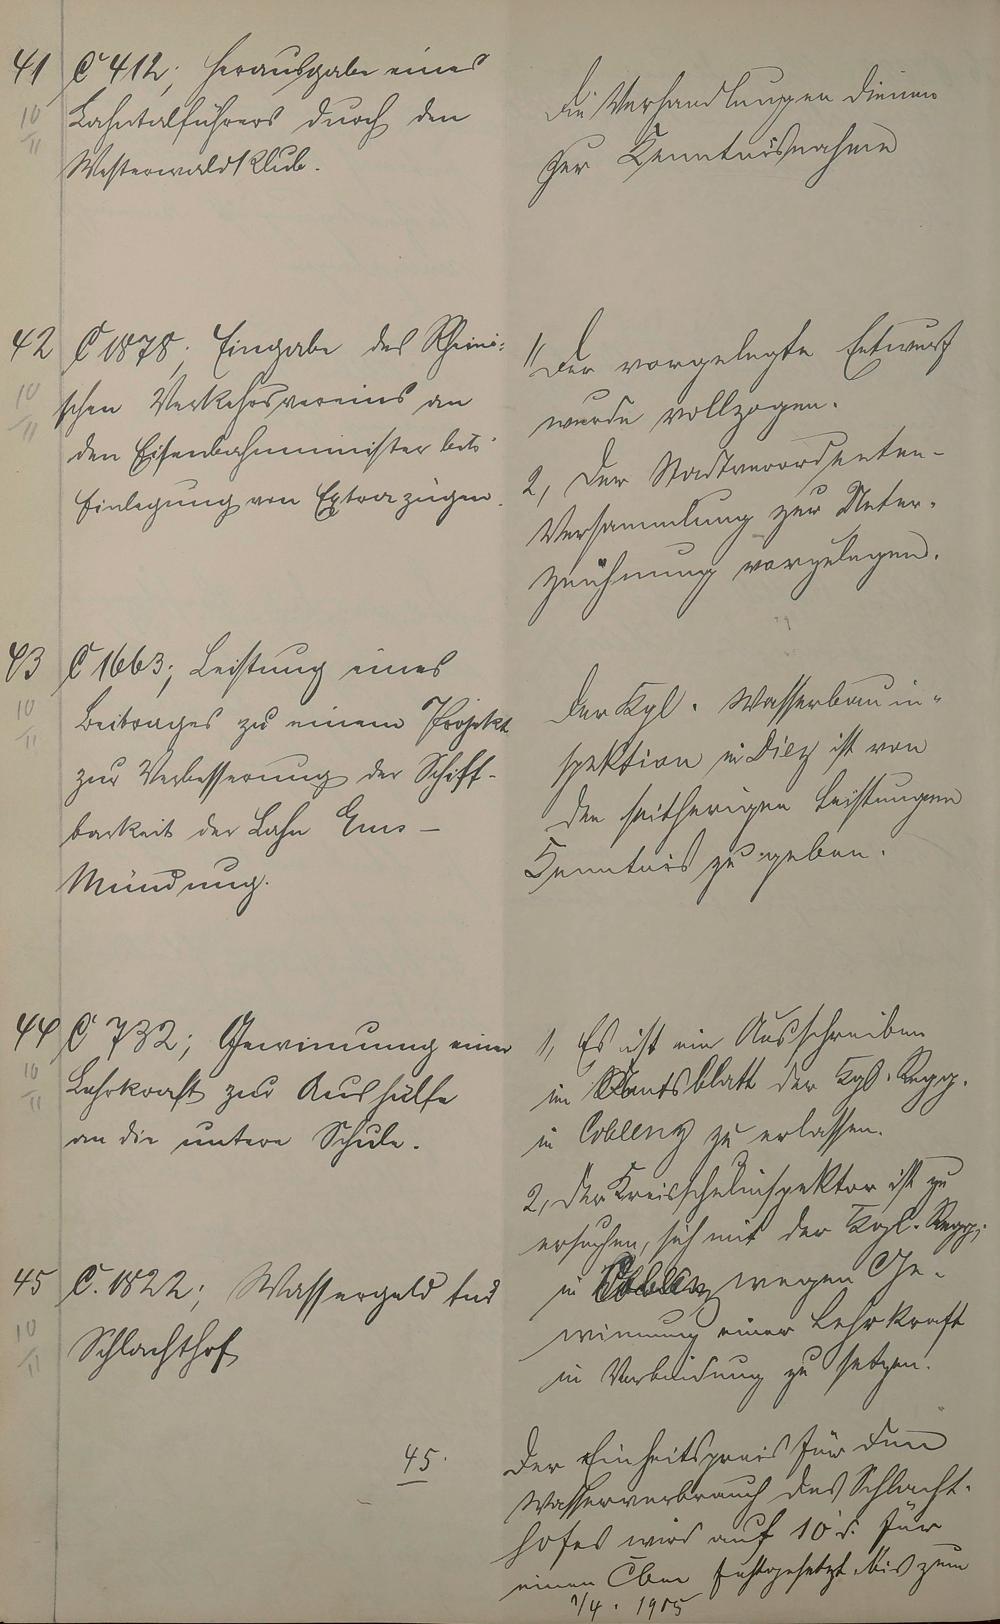 41 C 412; Herausgabe eines
10/11 Lahntalführers durch den
Westerwaldklub.
Die Verhandlungen dienen
zur Kenntnisnahme
42 C 1878; Eingabe des Rheini-
10/11 schen Verkehrsvereins an
den Eisenbahnminister betr.
Einlegung von Extrazügen.
1, Der vorgelegte Entwurf
wurde vollzogen.
2, Der Stadtverordneten-
Versammlung zur Unter-
zeichnung vorzulegen.
43 C 1663; Leistung eines
10/11 Beitrages zu einem Projekt
zur Verbesserung der Schiff-
barkeit der Lahn Ems –
Mündung.
Der Kgl. Wasserbauin-
spektion in Diez ist von
den seitherigen Leistungen
Kenntnis zu geben.
44 C 732; Gewinnung einer
10/11 Lehrkraft zur Aushülfe
an die untere Schule.
1, Es ist ein Ausschreiben
im Amtsblatt der Kgl. Regg.
in Coblenz zu erlassen.
2, Der Kreisschulinspektor ist zu
ersuchen, sich mit der Kgl. Regg.
in Coblenz wegen Ge-
winnung einer Lehrkraft
in Verbindung zu setzen.
45 C. 1822; Wassergeld
10/11 Schlachthof
45.
Der Einheitspreis für den
Wasserverbrauch des Schlacht-
hofes wird auf 10 für
einen Cbm festgesetzt bis zum
1/4. 1905